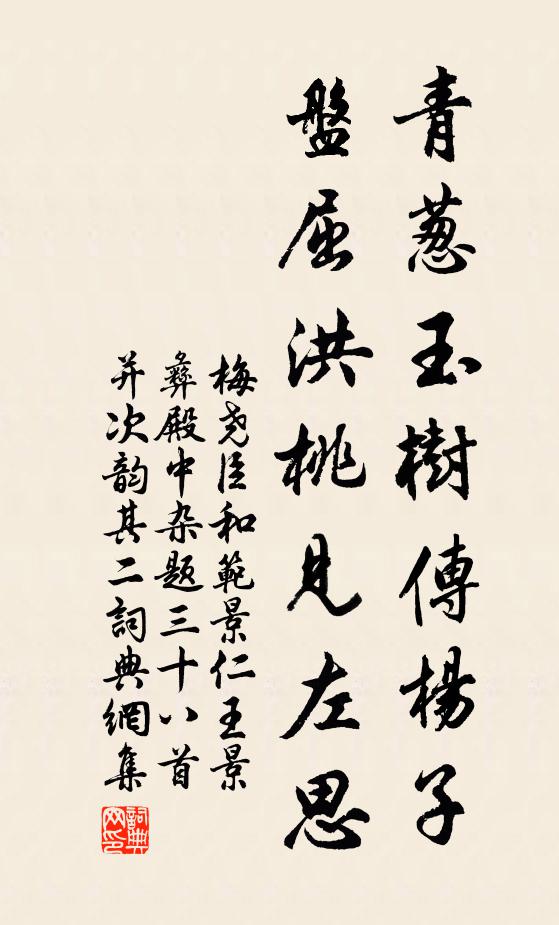 青葱玉樹傳楊子
盤屈洪桃見左思
梅尧臣和範景仁王景
彝殿中杂题三十八首
并次韵其二詞典網集
詞典网印